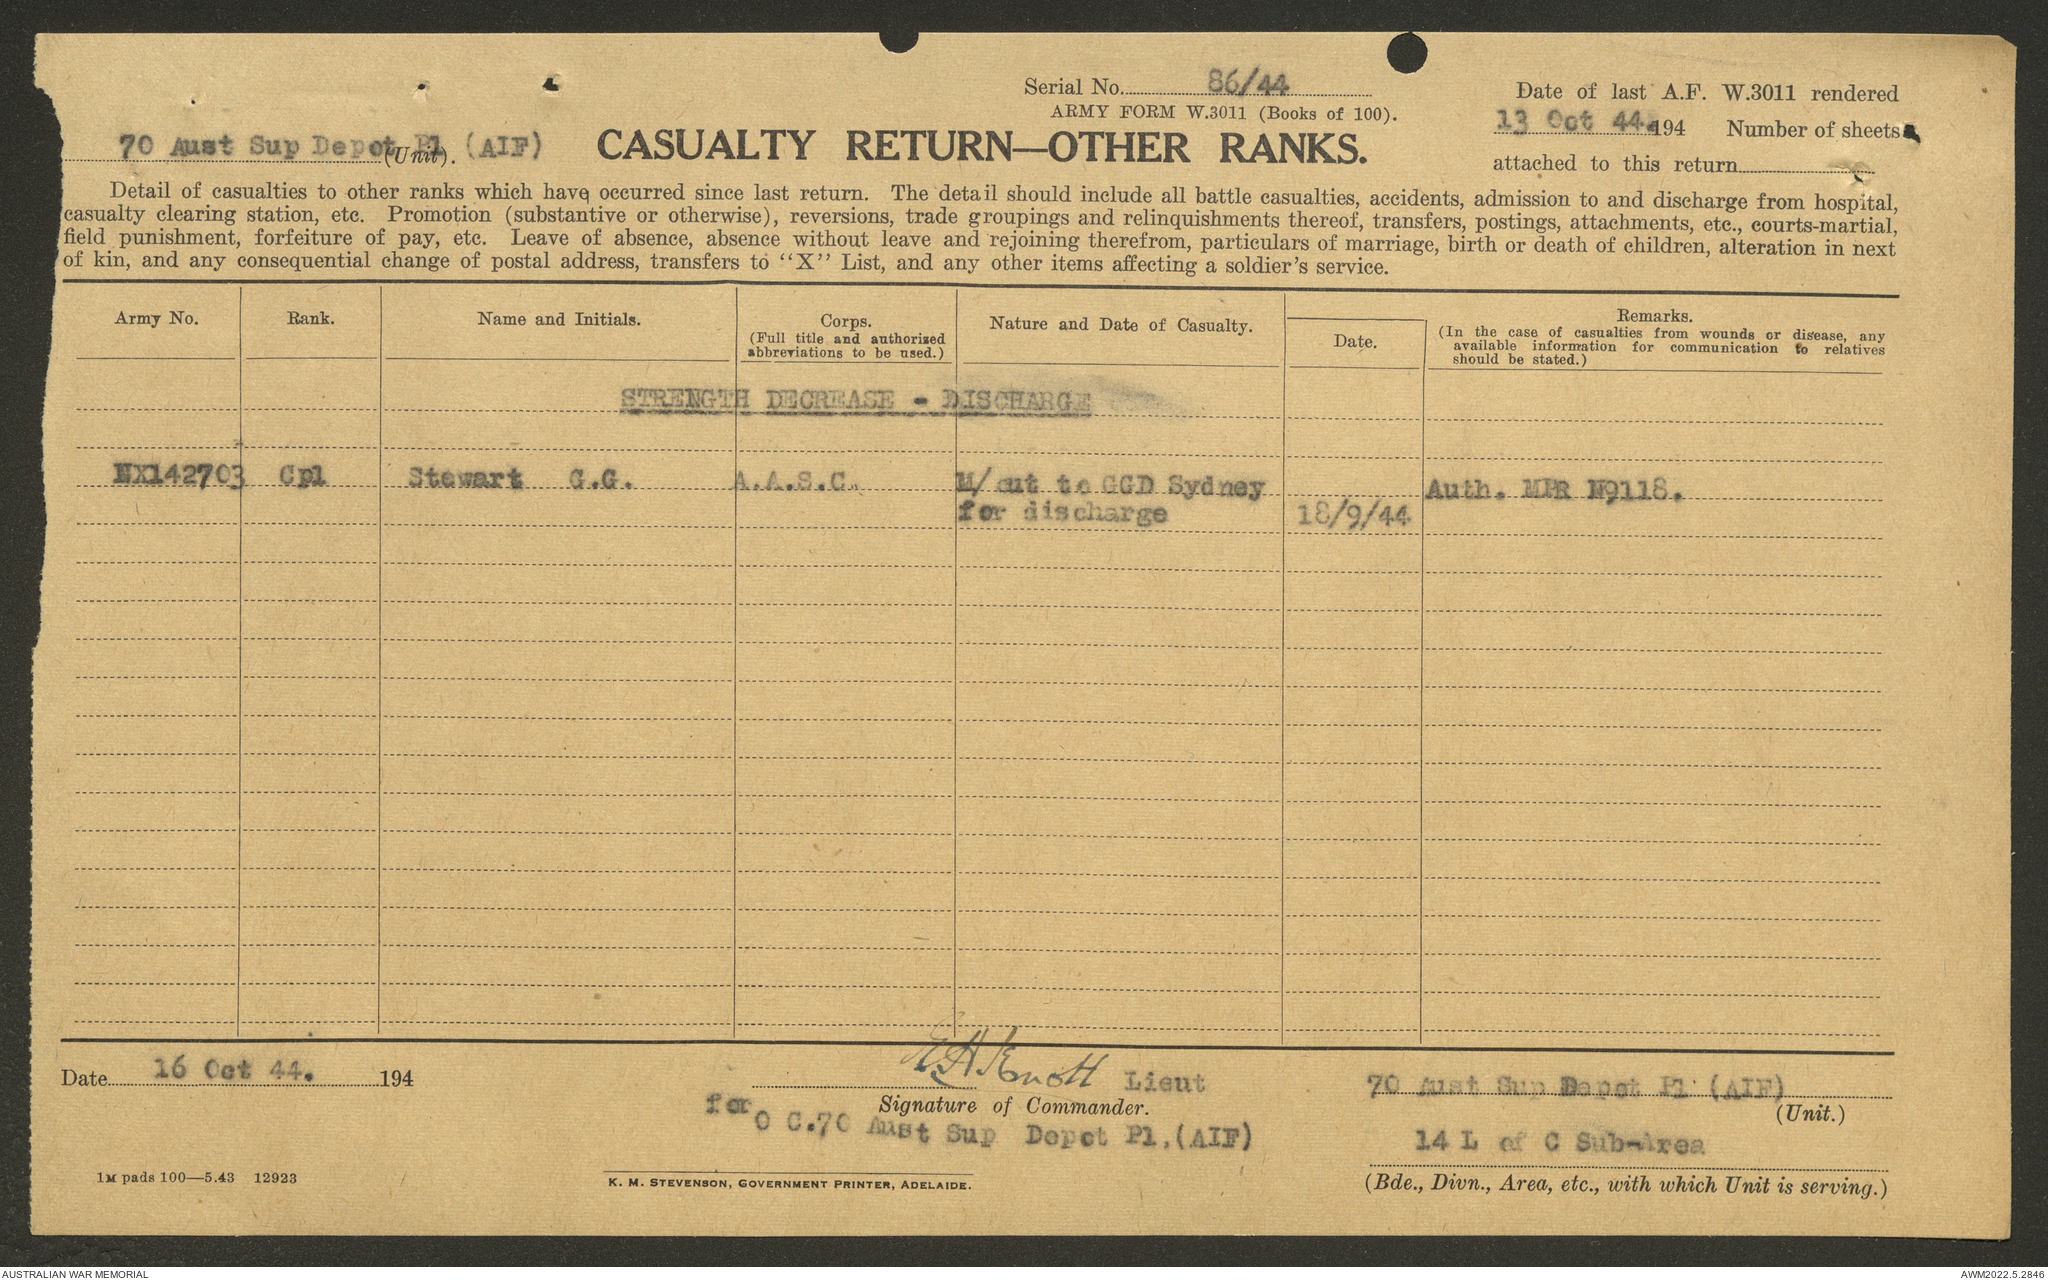 Serial No. 86/44
ARMY FORM W.3011 (Books of 100).
Date of last A.F. W.3011 rendered
13 Oct 44. 194 Number of sheets
attached to this return
70 Aust Sup Depot Pl (AIF)
(Unit).
CASUALTY RETURN—OTHER RANKS.
Detail of casualties to other ranks which have occurred since last return. The detail should include all battle casualties, accidents, admission to and discharge from hospital,
casualty clearing station, etc. Promotion (substantive or otherwise), reversions, trade groupings and relinquishments thereof, transfers, postings, attachments, etc., courts-martial,
field punishment, forfeiture of pay, etc. Leave of absence, absence without leave and rejoining therefrom, particulars of marriage, birth or death of children, alteration in next
of kin, and any consequential change of postal address, transfers to "X" List, and any other items affecting a soldier's service.
Army No. Rank. Name and Initials. Corps. Nature and Date of Casualty. Date. Remarks.
(Full title and authorized
abbreviations to be used.)
(In the case of casualties from wounds or disease, any
available information for communication to relatives
should be stated.)
STRENGTH DECREASE - DISCHARGE
NX142703 Cpl Stewart G.G. A.A.S.C. M/out to GGD Sydney Auth. MPR N9118.
for discharge 18/9/44
Date 16 Oct 44. 194
Knott Lieut
Signature of Commander.
for O C.70 Aust Sup Depot Pl.(AIF)
70 Aust Sup Depot Pl (AIF)
(Unit.)
14 L of C Sub-Area
(Bde., Divn., Area, etc., with which Unit is serving.)
1M pads 100—5.43 12923
K. M. STEVENSON, GOVERNMENT PRINTER, ADELAIDE.
AUSTRALIAN WAR MEMORIAL
AWM2022.5.2846